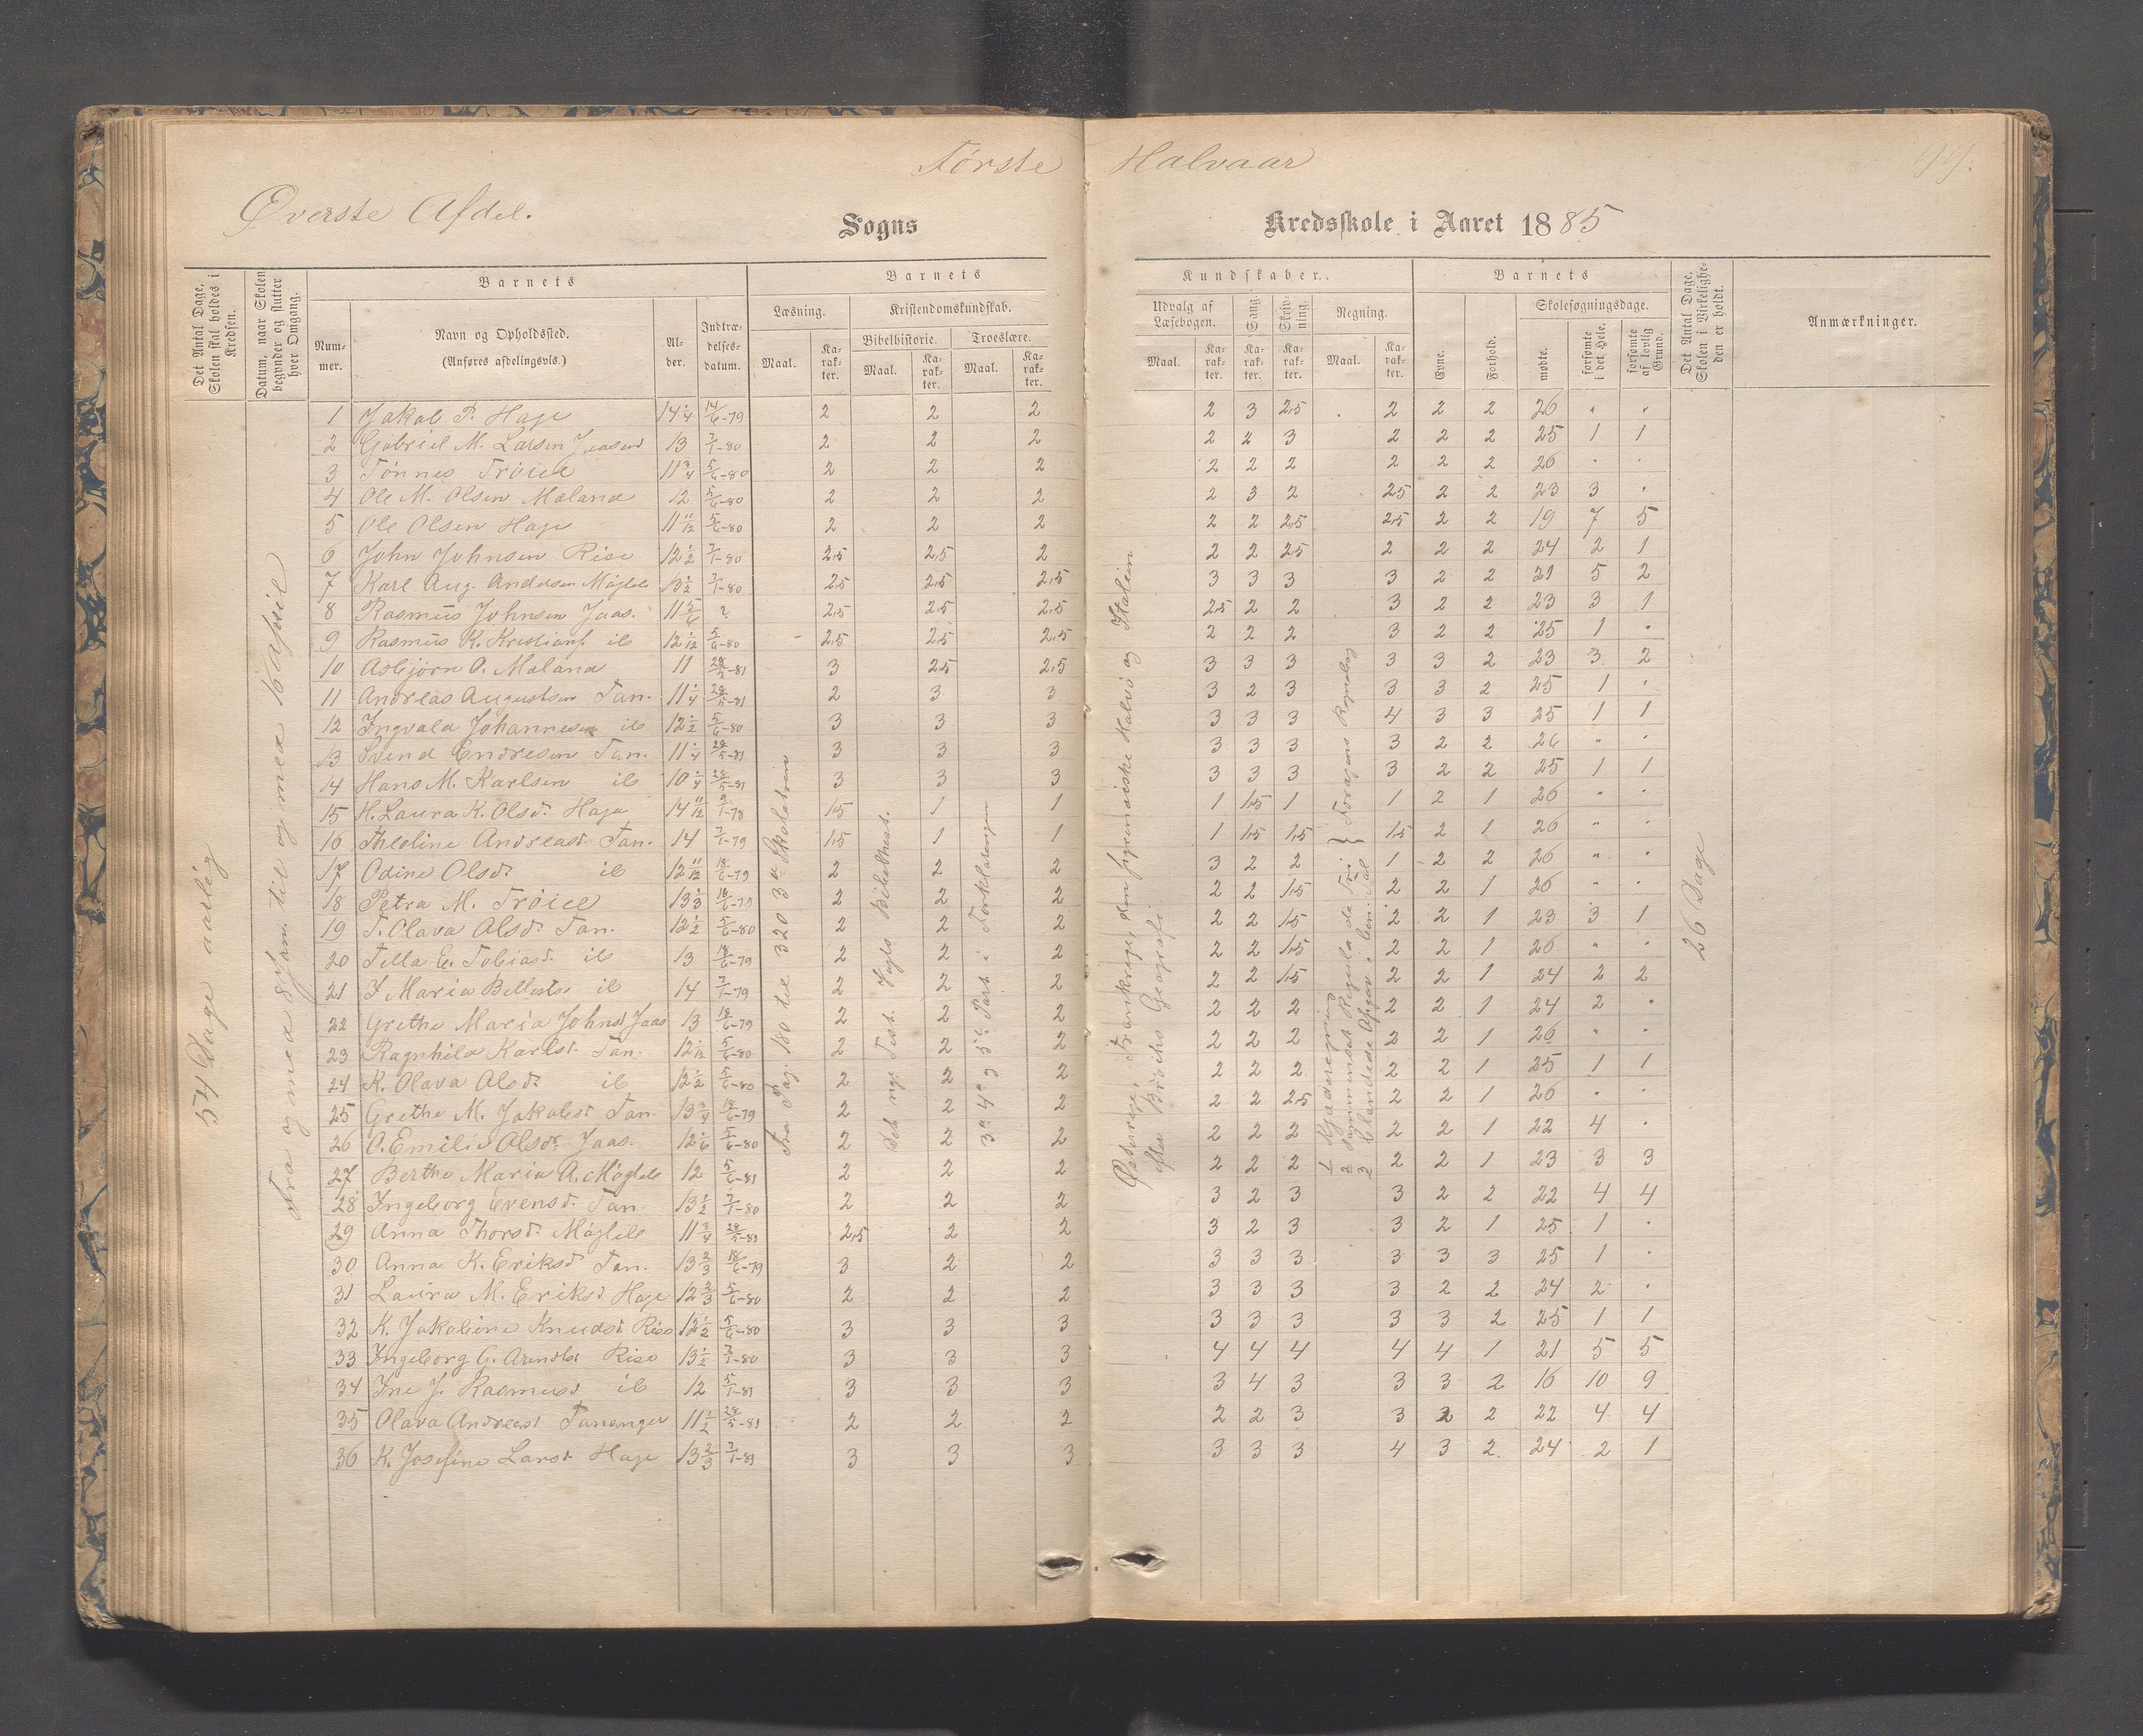 Første Halvaar
Øverste Afdel.
Sogns Kredsskole i Aaret 1885
Det Antal Dage, Skolen skal holdes i Kredsen.
Datum, naar Skolen begynder og slutter hver Omgang.
Barnets
Nummer.
Navn og Opholdssted.
(Anføres afdelingsvis.)
Alder.
Indtrædelsesdatum.
Barnets Kundskaber.
Læsning.
Maal.
Karakter.
Kristendomskundskab.
Bibelhistorie.
Maal.
Karakter.
Troeslære.
Maal.
Karakter.
Udvalg af Læsebogen.
Maal.
Karakter.
Sang.
Karakter.
Skrivning.
Karakter.
Regning.
Maal.
Karakter.
Barnets
Evne.
Forhold.
Skolesøgningsdage.
mødte.
forsømte i det Hele.
forsømte af lovlig Grund.
Det Antal Dage, Skolen i Virkeligheden er holdt.
Anmærkninger.
54 Dage aarlig
Fra og med 8 Jan. til og med 16 April
Fra Pag. 180 til 320 3die Skoletrin
Vogts Bibelhist.
3die 4de og 5te Part i Forklaringen
Østerrige, Frankrige, den pyrenæiske Halvø og Italien
efter Geografi
26 Dage
1 Jakob P. Haje 14 1/4 14/6-79 2 2 2 2 3 2,5 2 2 2 26 " "
2 Gabriel M. Larsen Jaasund 13 7/1-80 2 2 2 2 2 3 2 2 2 25 1 1
3 Tønnes Trøice 11 3/4 5/6-80 2 2 2 2 2 2 2 2 2 26 " "
4 Ole M. Olsen Mæland 12 5/6-80 2 2 2 2 3 2 2,5 2 2 23 3 "
5 Ole Olsen Haje 11 11/12 5/6-80 2 2 2 2 2 2,5 2,5 2 2 19 7 5
6 John Johnsen Risa 12 1/2 7/1-80 2,5 2,5 2 2 2 2,5 2 2 2 24 2 1
7 Karl Aug. Andersen Møglebust 13 1/2 7/1-80 2,5 2,5 2,5 3 3 3 3 2 2 21 5 2
8 Rasmus Johnsen Jaas. 11 5/6 ? 2,5 2,5 2,5 2,5 2 2 3 2 2 23 3 1
9 Rasmus K. Kristians. ib 12 1/12 5/6-80 2,5 2,5 2,5 2 2 2 3 2 2 25 1 "
10 Asbjørn O. Mæland 11 28/5-81 3 2,5 2,5 3 3 3 3 3 2 23 3 2
11 Andreas Augustsen Tan. 11 1/4 28/5-81 2 3 3 3 2 3 3 3 2 25 1 "
12 Ingvald Johannesen ib 12 1/2 5/6-80 3 3 3 3 3 3 4 3 3 25 1 1
13 Svend Endresen Tan. 11 1/4 28/5-81 3 3 3 3 3 3 3 2 2 26 " "
14 Hans M. Karlsen ib 10 1/4 28/5-81 3 3 3 3 3 3 3 2 2 25 1 1
15 H. Laura K. Olsd. Haje 14 11/12 1 1 1 1,5 1 1 2 1 26 " "
16 Theoline Andreasd. Tan. 14 7/1-79 1,5 1 1 1 1,5 1,5 1,5 2 1 26 " "
17 Odine Olsd. ib 12 11/12 18/6-79 2 2 2 3 2 2 1 2 2 26 " "
18 Petra M. Trøice 13 1/3 18/6-79 2 2 2 2 2 1,5 2 2 1 26 " "
19 T. Olava Olsd. Tan. 12 1/2 5/6-80 2 2 2 2 2 1,5 2 2 1 23 3 1
20 Tella E. Tobiasd. ib 13 18/6-79 2 2 2 2 2 1,5 2 2 1 26 " "
21 Maria ib 14 7/1-79 2 2 2 2 2 1,5 2 2 1 24 2 2
22 Grethe Maria Johnsd. Jaas 13 18/6-79 2 2 2 2 2 2 2 2 1 24 2 "
23 Ragnhild Karlsd. Tan. 12 1/12 5/6-80 2 2 2 2 2 2 2 2 1 26 " "
24 K. Olava Olsd. ib 12 1/2 5/6-80 2 2 2 2 2 2 2 2 1 25 1 1
25 Grethe M. Jakobsd. Tan. 13 3/4 18/6-79 2 2 2 2 2 2,5 2 2 1 26 " "
26 O. Emilie Olsd. Jaas. 12 1/6 5/6-80 2 2 2 2 2 2 2 2 1 22 4 "
27 Berthe Maria A. Møgleb 12 5/6-81 2 2 2 2 2 2 2 2 1 23 3 3
28 Ingeborg Evensd. Tan. 13 1/2 7/1-80 2 2 2 3 2 3 3 2 2 22 4 4
29 Anna Thorsd. Møgleb 11 3/4 28/5-81 2,5 2 2 3 2 3 3 2 1 25 1 "
30 Anna K. Eriksd. Tan. 13 2/3 18/6-79 3 2 2 3 3 3 3 3 3 25 1 "
31 Laura M. Eriksd. Haje 12 2/3 5/6-80 2 2 2 3 3 3 3 2 2 24 2 "
32 K. Jakobine Knudsd. Risa 12 1/2 5/6-80 3 3 3 3 3 3 3 3 2 25 1 1
33 Ingeborg G. Arendtsd. Risa 13 1/2 7/1-80 3 3 3 4 4 4 4 4 1 21 5 5
34 Ine J. Rasmusd. ib 12 5/1-81 3 3 3 3 4 3 3 3 2 16 10 9
35 Olava Andreasd. Tananger 11 1/2 28/5-81 2 2 2 2 2 3 3 2 2 22 4 4
36 K. Josefine Larsd. Haje 13 2/3 7/1-81 3 3 3 3 3 3 4 3 2 24 2 1